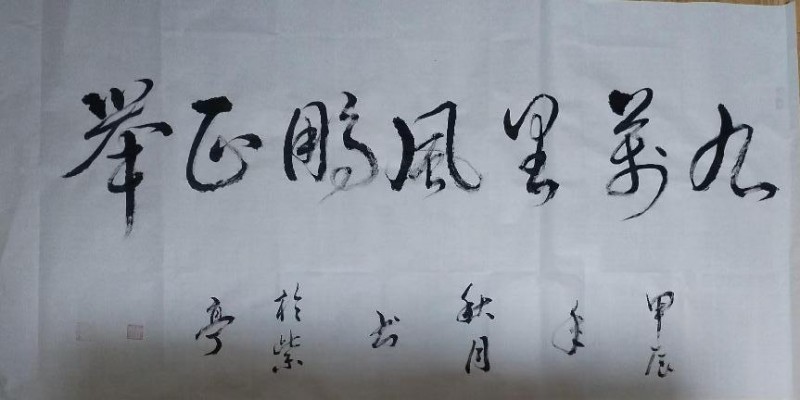 九萬里風鵬正举
甲辰
年
秋月
书
於紫
亭